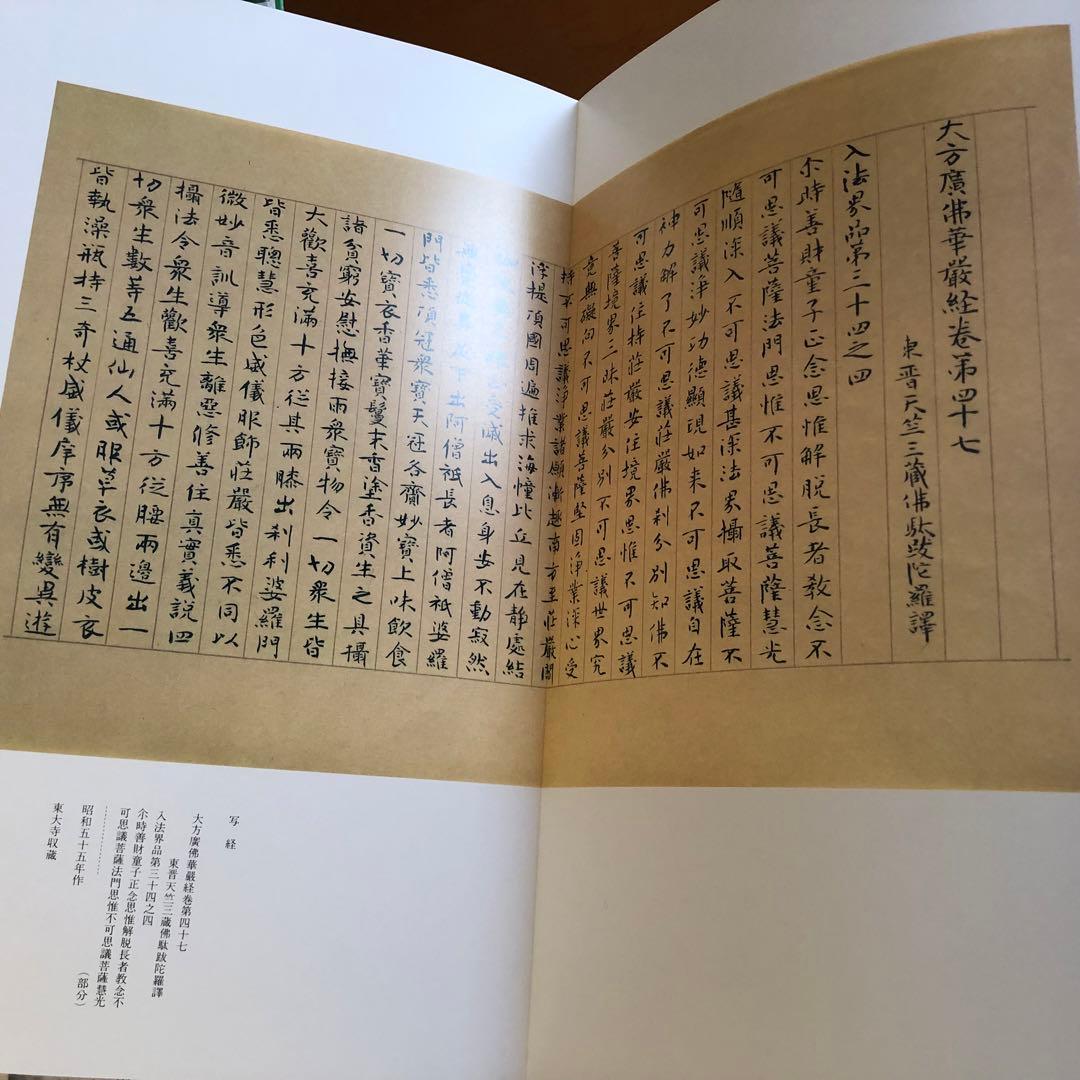 大方廣佛華嚴経卷第四十七
東晋天竺三藏佛馱跋陀羅譯
入法界品第三十四之四
尒時善財童子正念思惟解脱長者教念不
可思議菩薩法門思惟不可思議菩薩慧光
随順深入不可思議甚深法界攝取菩薩不
可思議浄妙功德顯現如来不可思議自在
神力解了不可思議莊嚴佛刹分別知佛不
可思議住持莊嚴安住境界思惟不可思議
菩薩境界三昧莊嚴分別不可思議世界究
竟無礙向不可思議菩薩堅固浄業深心受
持不可思議浄業諸願漸趣南方至莊嚴閻
浮提頂國周遍推求海幢比丘見在静處結
滅出入息身安不動寂然
下出阿僧祇長者阿僧祇婆羅
門皆悉頂冠衆寶天冠各齎妙寶上味飲食
一切寶衣香華寶鬘末香塗香資生之具攝
諸貧窮安慰撫接雨衆寶物令一切衆生皆
大歡喜充滿十方従其兩膝出刹利婆羅門
皆悉聰慧形色威儀服飾莊嚴皆悉不同以
微妙音訓導衆生離惡修善住真實義説四
攝法令衆生歡喜充滿十方従腰兩邊出一
切衆生數等五通仙人或服草衣或樹皮衣
皆執澡瓶持三奇杖威儀庠序無有變異遊
写経
大方廣佛華嚴経卷第四十七
東晋天竺三蔵佛馱跋陀羅譯
入法界品第三十四之四
尒時善財童子正念思惟解脱長者教念不
可思議菩薩法門思惟不可思議菩薩慧光
(部分)
昭和五十五年作
東大寺収蔵